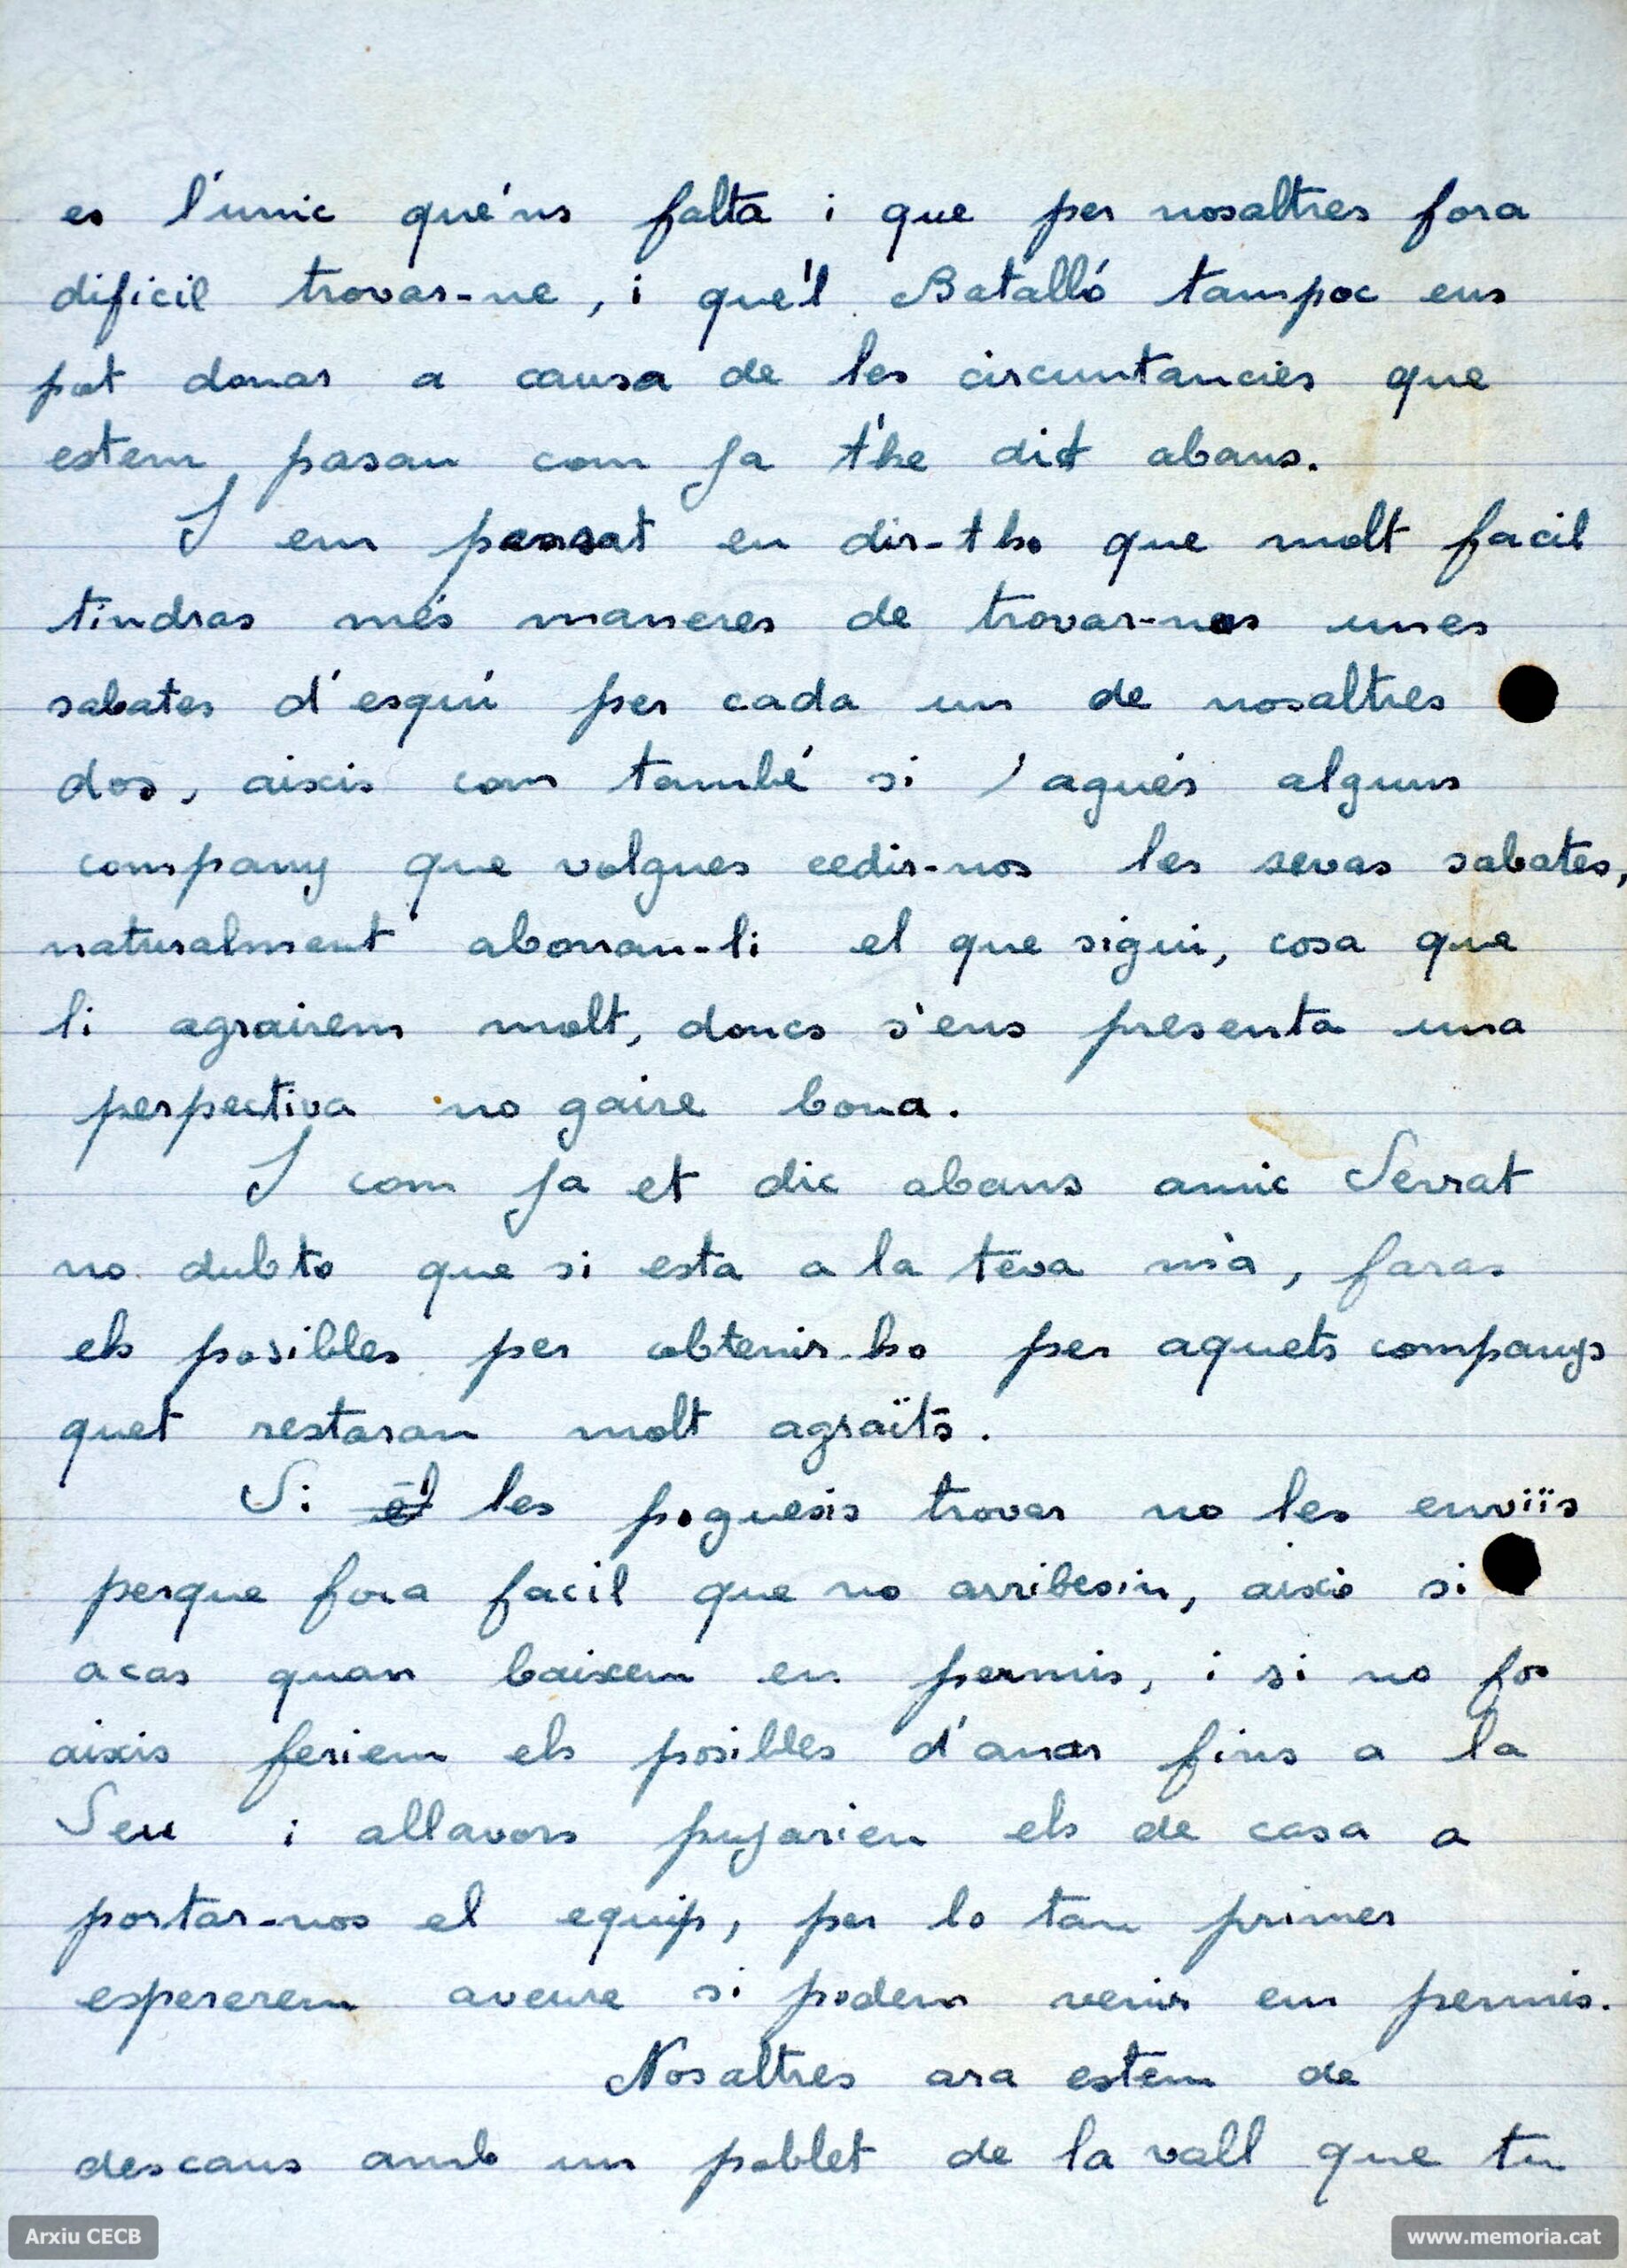 es l'unic que'ns falta i que per nosaltres fora
dificil trovar-ne, i que'l Batalló tampoc ens
pot donar a causa de les circuntancies que
estem pasan com ja t'he dit abans.
I em pensat en dir-tho que molt facil
tindras més maneres de trovar-nos unes
sabates d'esquí per cada un de nosaltres
dos, aixis com també si l'agués alguns
company que volgues cedir-nos les sevas sabates,
naturalment abonan-li el que sigui, cosa que
li agrairem molt, doncs s'ens presenta una
perpectiva no gaire bona.
I com ja et dic abans amic Serrat
no dubto que si esta a la teva mà, faras
els posibles per obtenir-ho per aquets companys
quet restaran molt agraïts.
Si el les poguesis trovar no les enviïs
perque fora facil que no arribesin, aixó si
acas quan baixem en permis, i si no fos
aixis feriem els posibles d'anar fins a la
Seu i allavors pujarien els de casa a
portar-nos el equip, per lo tan primer
espererem aveure si podem venir em permis.
Nosaltres ara estem de
descans amb un poblet de la vall que tu
Arxiu CECB
www.memoria.cat